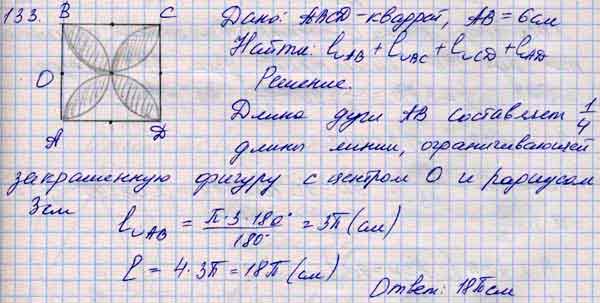 133. B C Дано: ABCD-квадрат, AB=6см
Найти: l◡AB+l◡BC+l◡CD+l◡AD
O Решение.
Длина дуги AB составляет 1/4
A D длины линии, ограничивающей
закрашенную фигуру с центром O и радиусом
3см
l◡AB = π·3·180°/180° = 3π (см)
l = 4·3π = 18π (см)
Ответ: 18π см